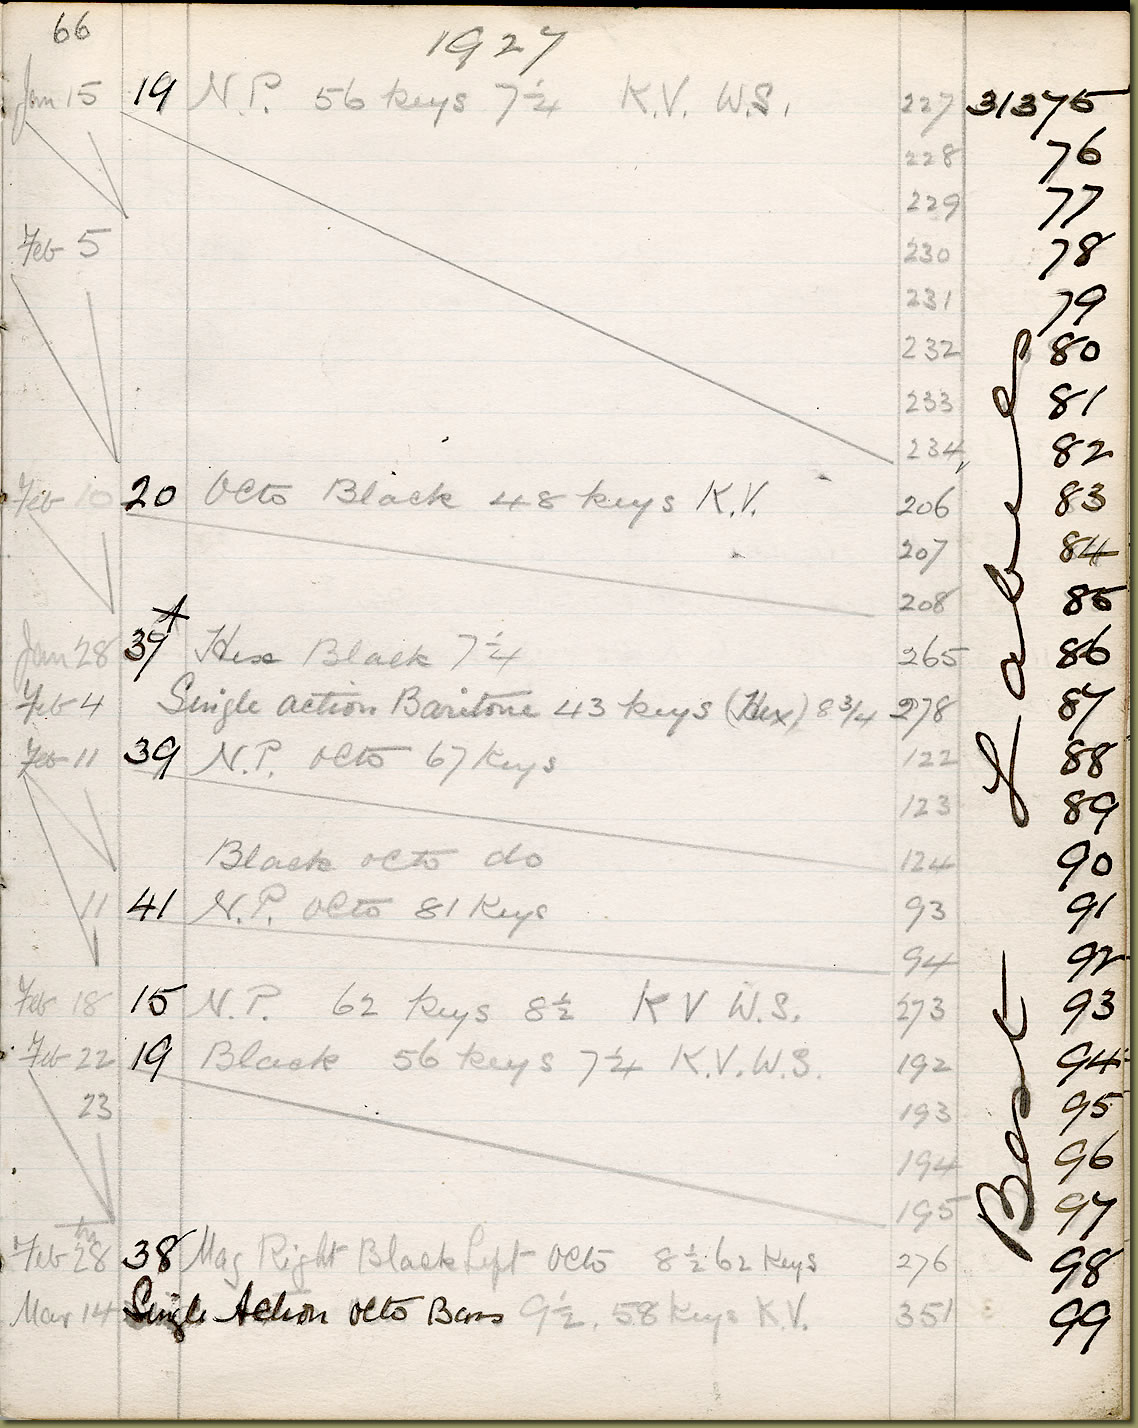 66
1927
Jan 15 19 N.P. 56 keys 7¼ K.V. W.S. 227 31375
228 76
229 77
Feb 5 230 78
231 79
232 80
233 81
234 82
Feb 10 20 Octo Black 48 keys K.V. 206 83
207 84
208 85
Jan 28 39 Hex Black 7¼ 265 86
Feb 4 Single action Baritone 43 keys (Hex) 8¾ 278 87
Feb 11 39 N.P. Octo 67 Keys 122 88
123 89
Black octo do 124 90
11 41 N.P. Octo 81 Keys 93 91
94 92
Feb 18 15 N.P. 62 keys 8½ K V W.S. 273 93
Feb 22 19 Black 56 keys 7¼ K.V. W.S. 192 94
23 193 95
194 96
195 97
Feb 28 38 Mag Right Black Left Octo 8½ 62 Keys 276 98
Mar 14 Single Action Octo Bass 9½. 58 Keys K.V. 351 99
Best Labels